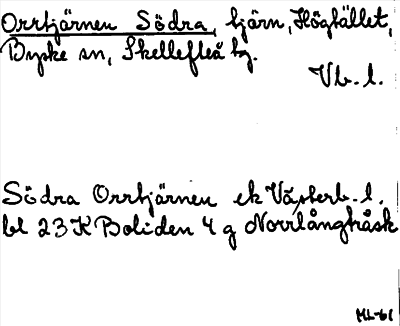 Orrtjärnen Södra, tjärn, Högfället,
Byske sn, Skellefteå tg.
Vb. l.
Södra Orrtjärnen ek Västerb. l.
bl 23 K Boliden 4 g Norrlångträsk
ML-61